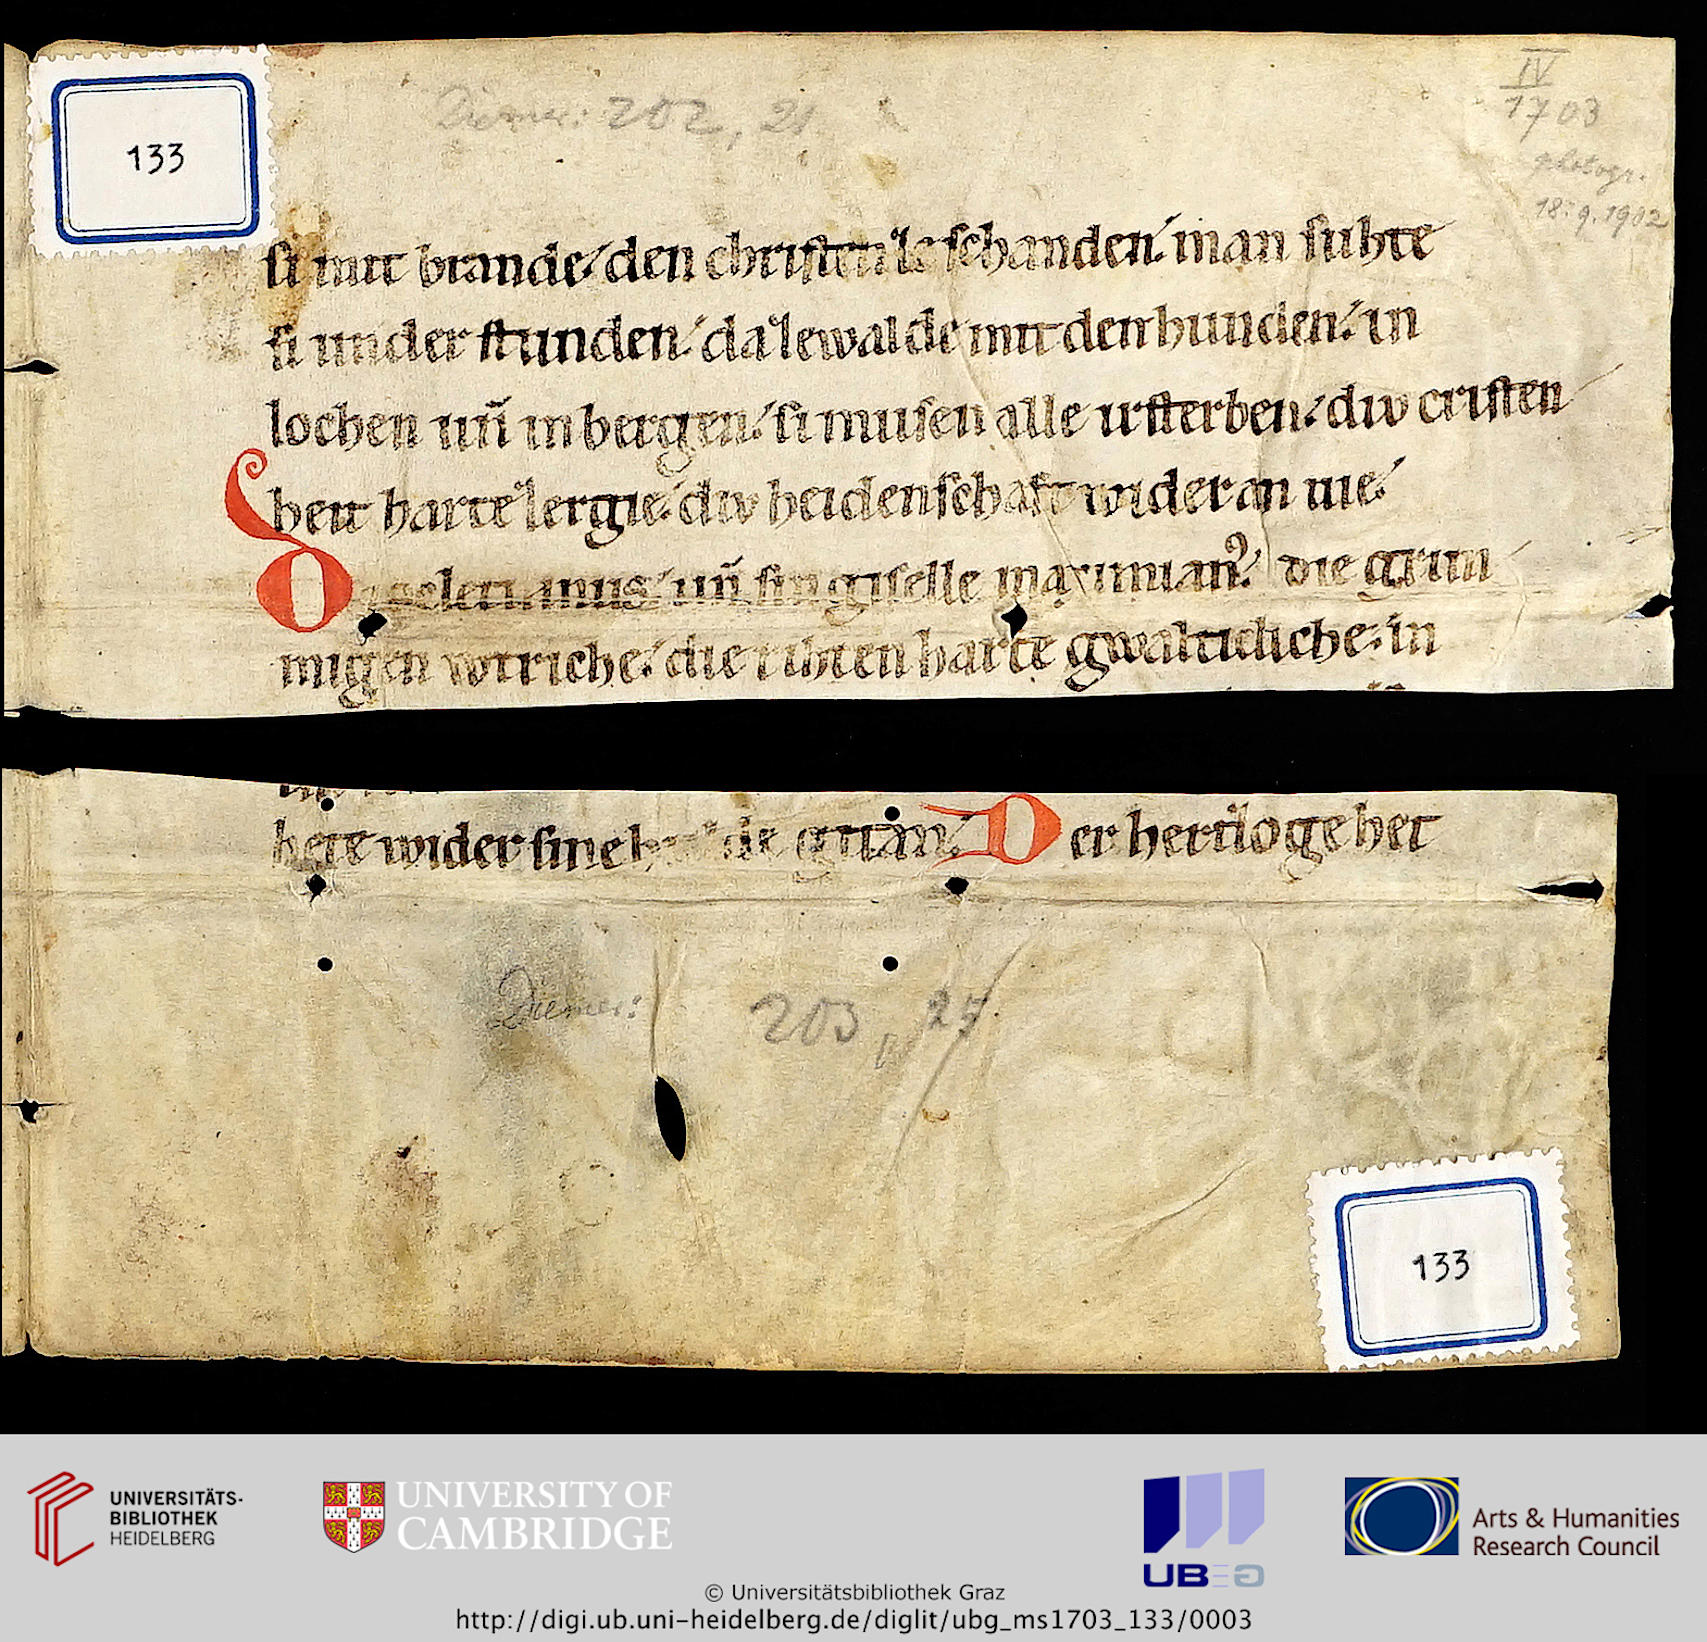 133
Diemer: 202, 21
IV
1703
photogr.
18.9.1902
si mit brande. den christen ze schanden. man suhte
si under stunden. da ze walde mit den hunden. in
lochen uñ in bergen. si musen alle irsterben. div cristen
heit harte zergie. div heidenschaft wider an vie.
uñ sin giselle maximian⁹. die grim
migen wtriche. die rihten harte gwaltichliche. in
hete wider sine getan. Der hertzoge het
Diemer:
203, 27.
133
UNIVERSITÄTS-
BIBLIOTHEK
HEIDELBERG
UNIVERSITY OF
CAMBRIDGE
UBEG
Arts & Humanities
Research Council
© Universitätsbibliothek Graz
http://digi.ub.uni-heidelberg.de/diglit/ubg_ms1703_133/0003